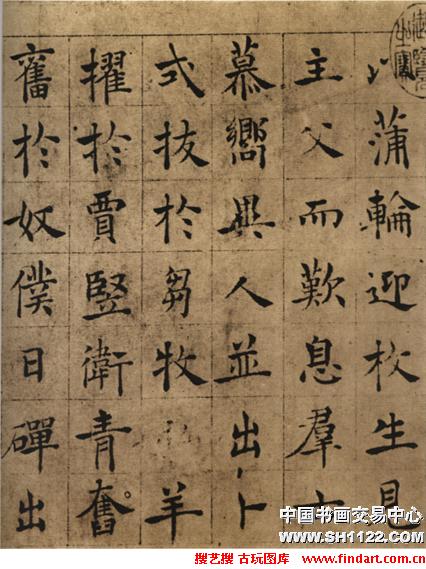 以蒲輪迎枚生見
主父而歎息羣
慕嚮異人並出卜
式抜於芻牧羊
擢於賈竪衛青奮
奮於奴僕日磾出
中国书画交易中心
www.SH1122.com
搜艺搜 古玩图库 www.findart.com.cn